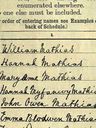 enumerated elsewhere.
one else must be included.
order of entering names see Examples
back of Schedule.)
1.
William Mathias
Hannah Mathias
Mary Anne Mathias
Hannah Myfanwy Mathias
John Owen Mathias
Emma Blodwen Mathias